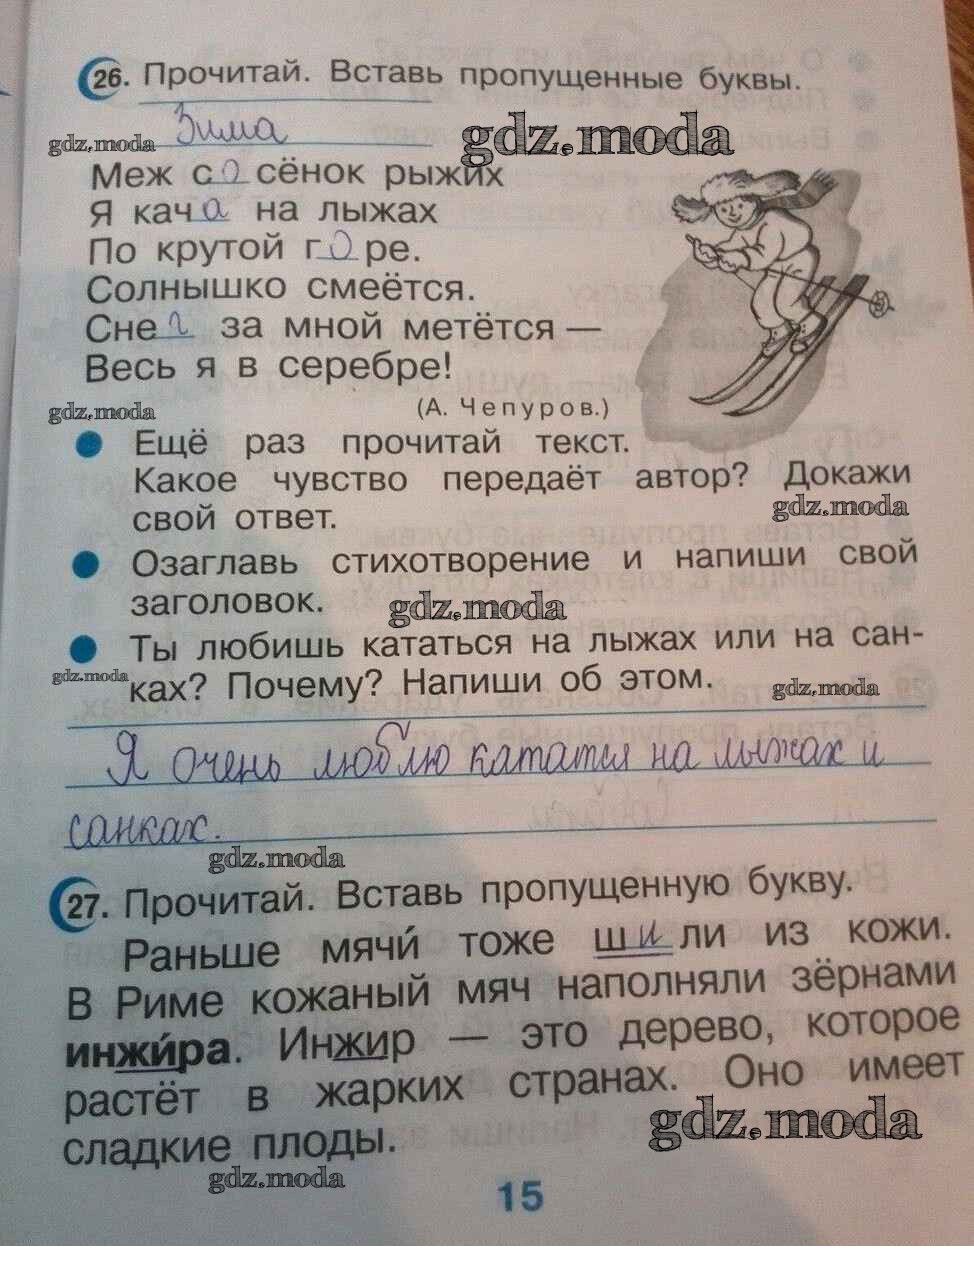 26. Прочитай. Вставь пропущенные буквы.
Зима
gdz.moda
gdz.moda
Меж сосёнок рыжих
Я кача на лыжах
По крутой горе.
Солнышко смеётся.
Снег за мной метётся —
Весь я в серебре!
(А. Чепуров.)
gdz.moda
Ещё раз прочитай текст.
Какое чувство передаёт автор? Докажи
свой ответ.
gdz.moda
Озаглавь стихотворение и напиши свой
заголовок.
gdz.moda
Ты любишь кататься на лыжах или на сан-
ках? Почему? Напиши об этом.
gdz.moda
gdz.moda
Я очень люблю кататся на лыжах и
санках.
gdz.moda
27. Прочитай. Вставь пропущенную букву.
Раньше мячи́ тоже шили из кожи.
В Риме кожаный мяч наполняли зёрнами
инжи́ра. Инжир — это дерево, которое
растёт в жарких странах. Оно имеет
сладкие плоды.
gdz.moda
gdz.moda
15